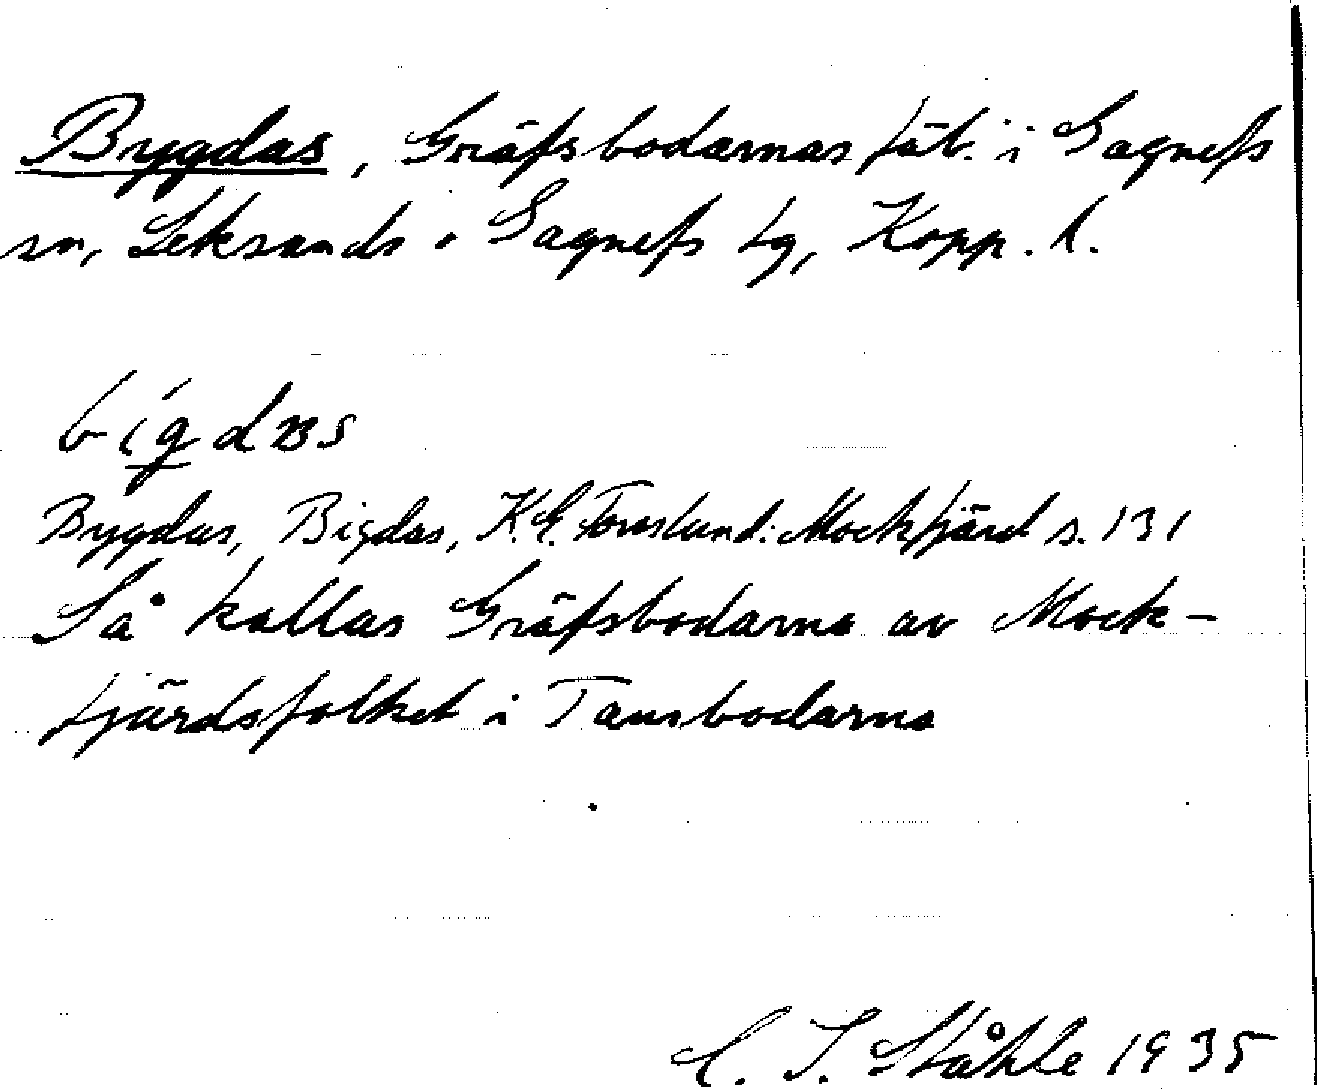 Bygdas, Gräfsbodarnas fäb. i Gagnefs
sn, Leksands o Gagnefs tg, Kopp. l.
Bygdas, Bigdas, K.E. Forslund: Mockfjärd s. 131
Så kallas Gräfsbodarna av Mock-
fjärdsfolket i Tansbodarna
C. I. Ståhle 1935